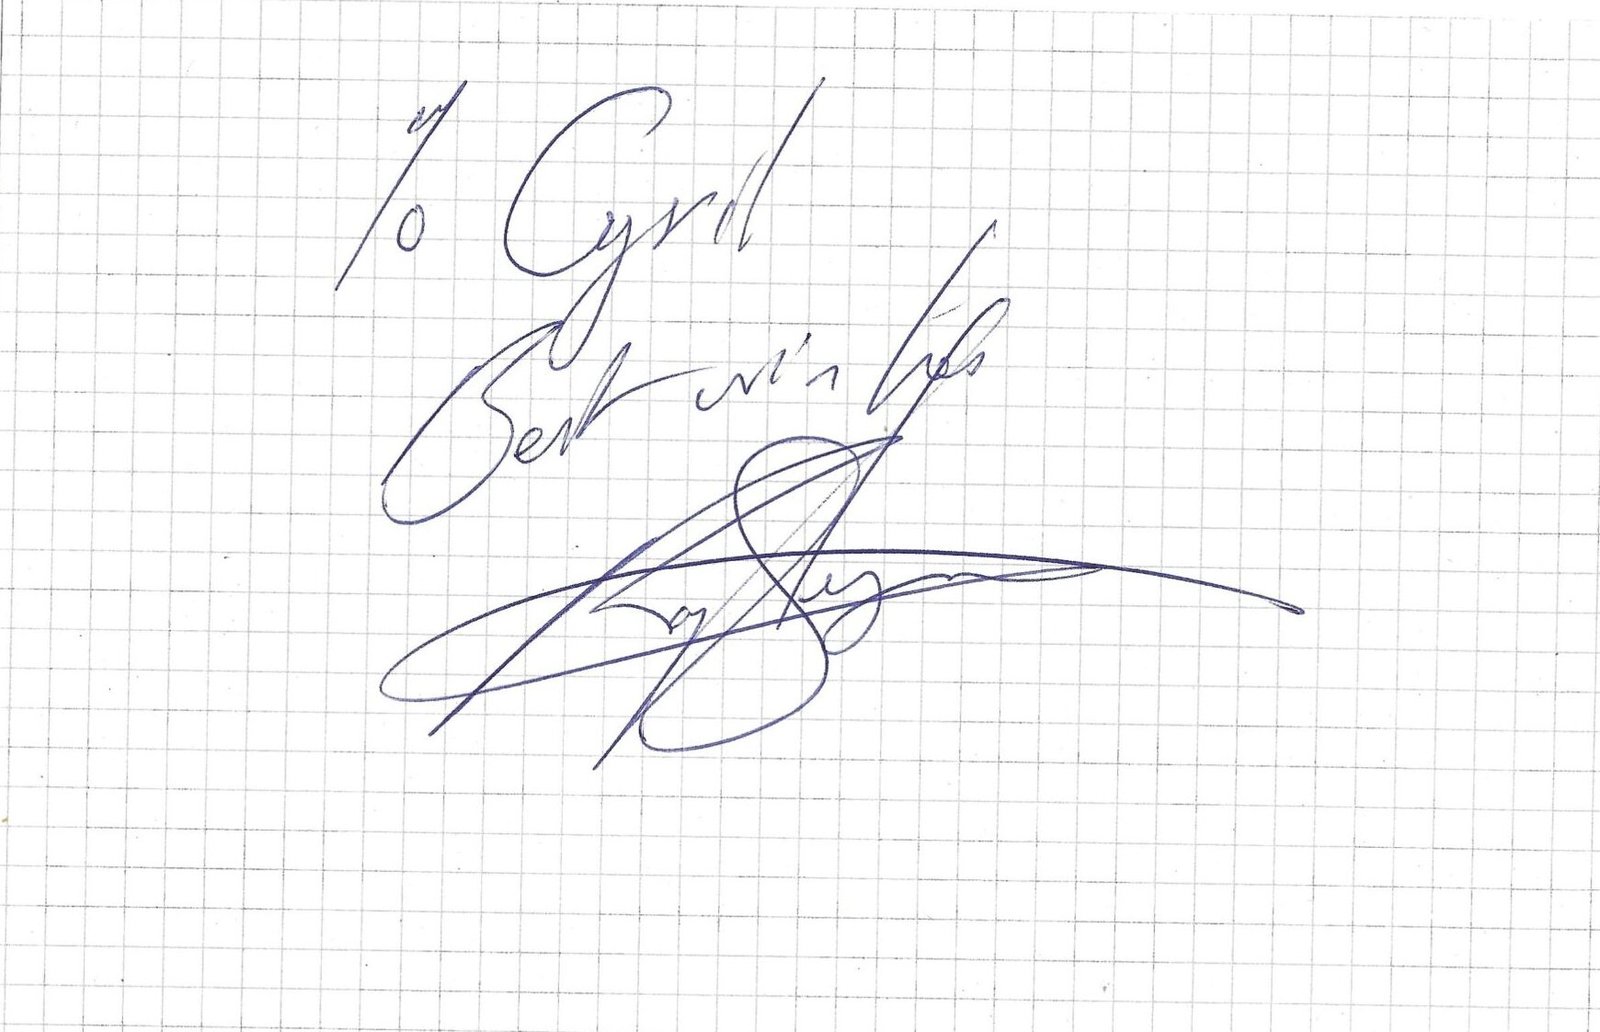 To Cyril
Best wishes